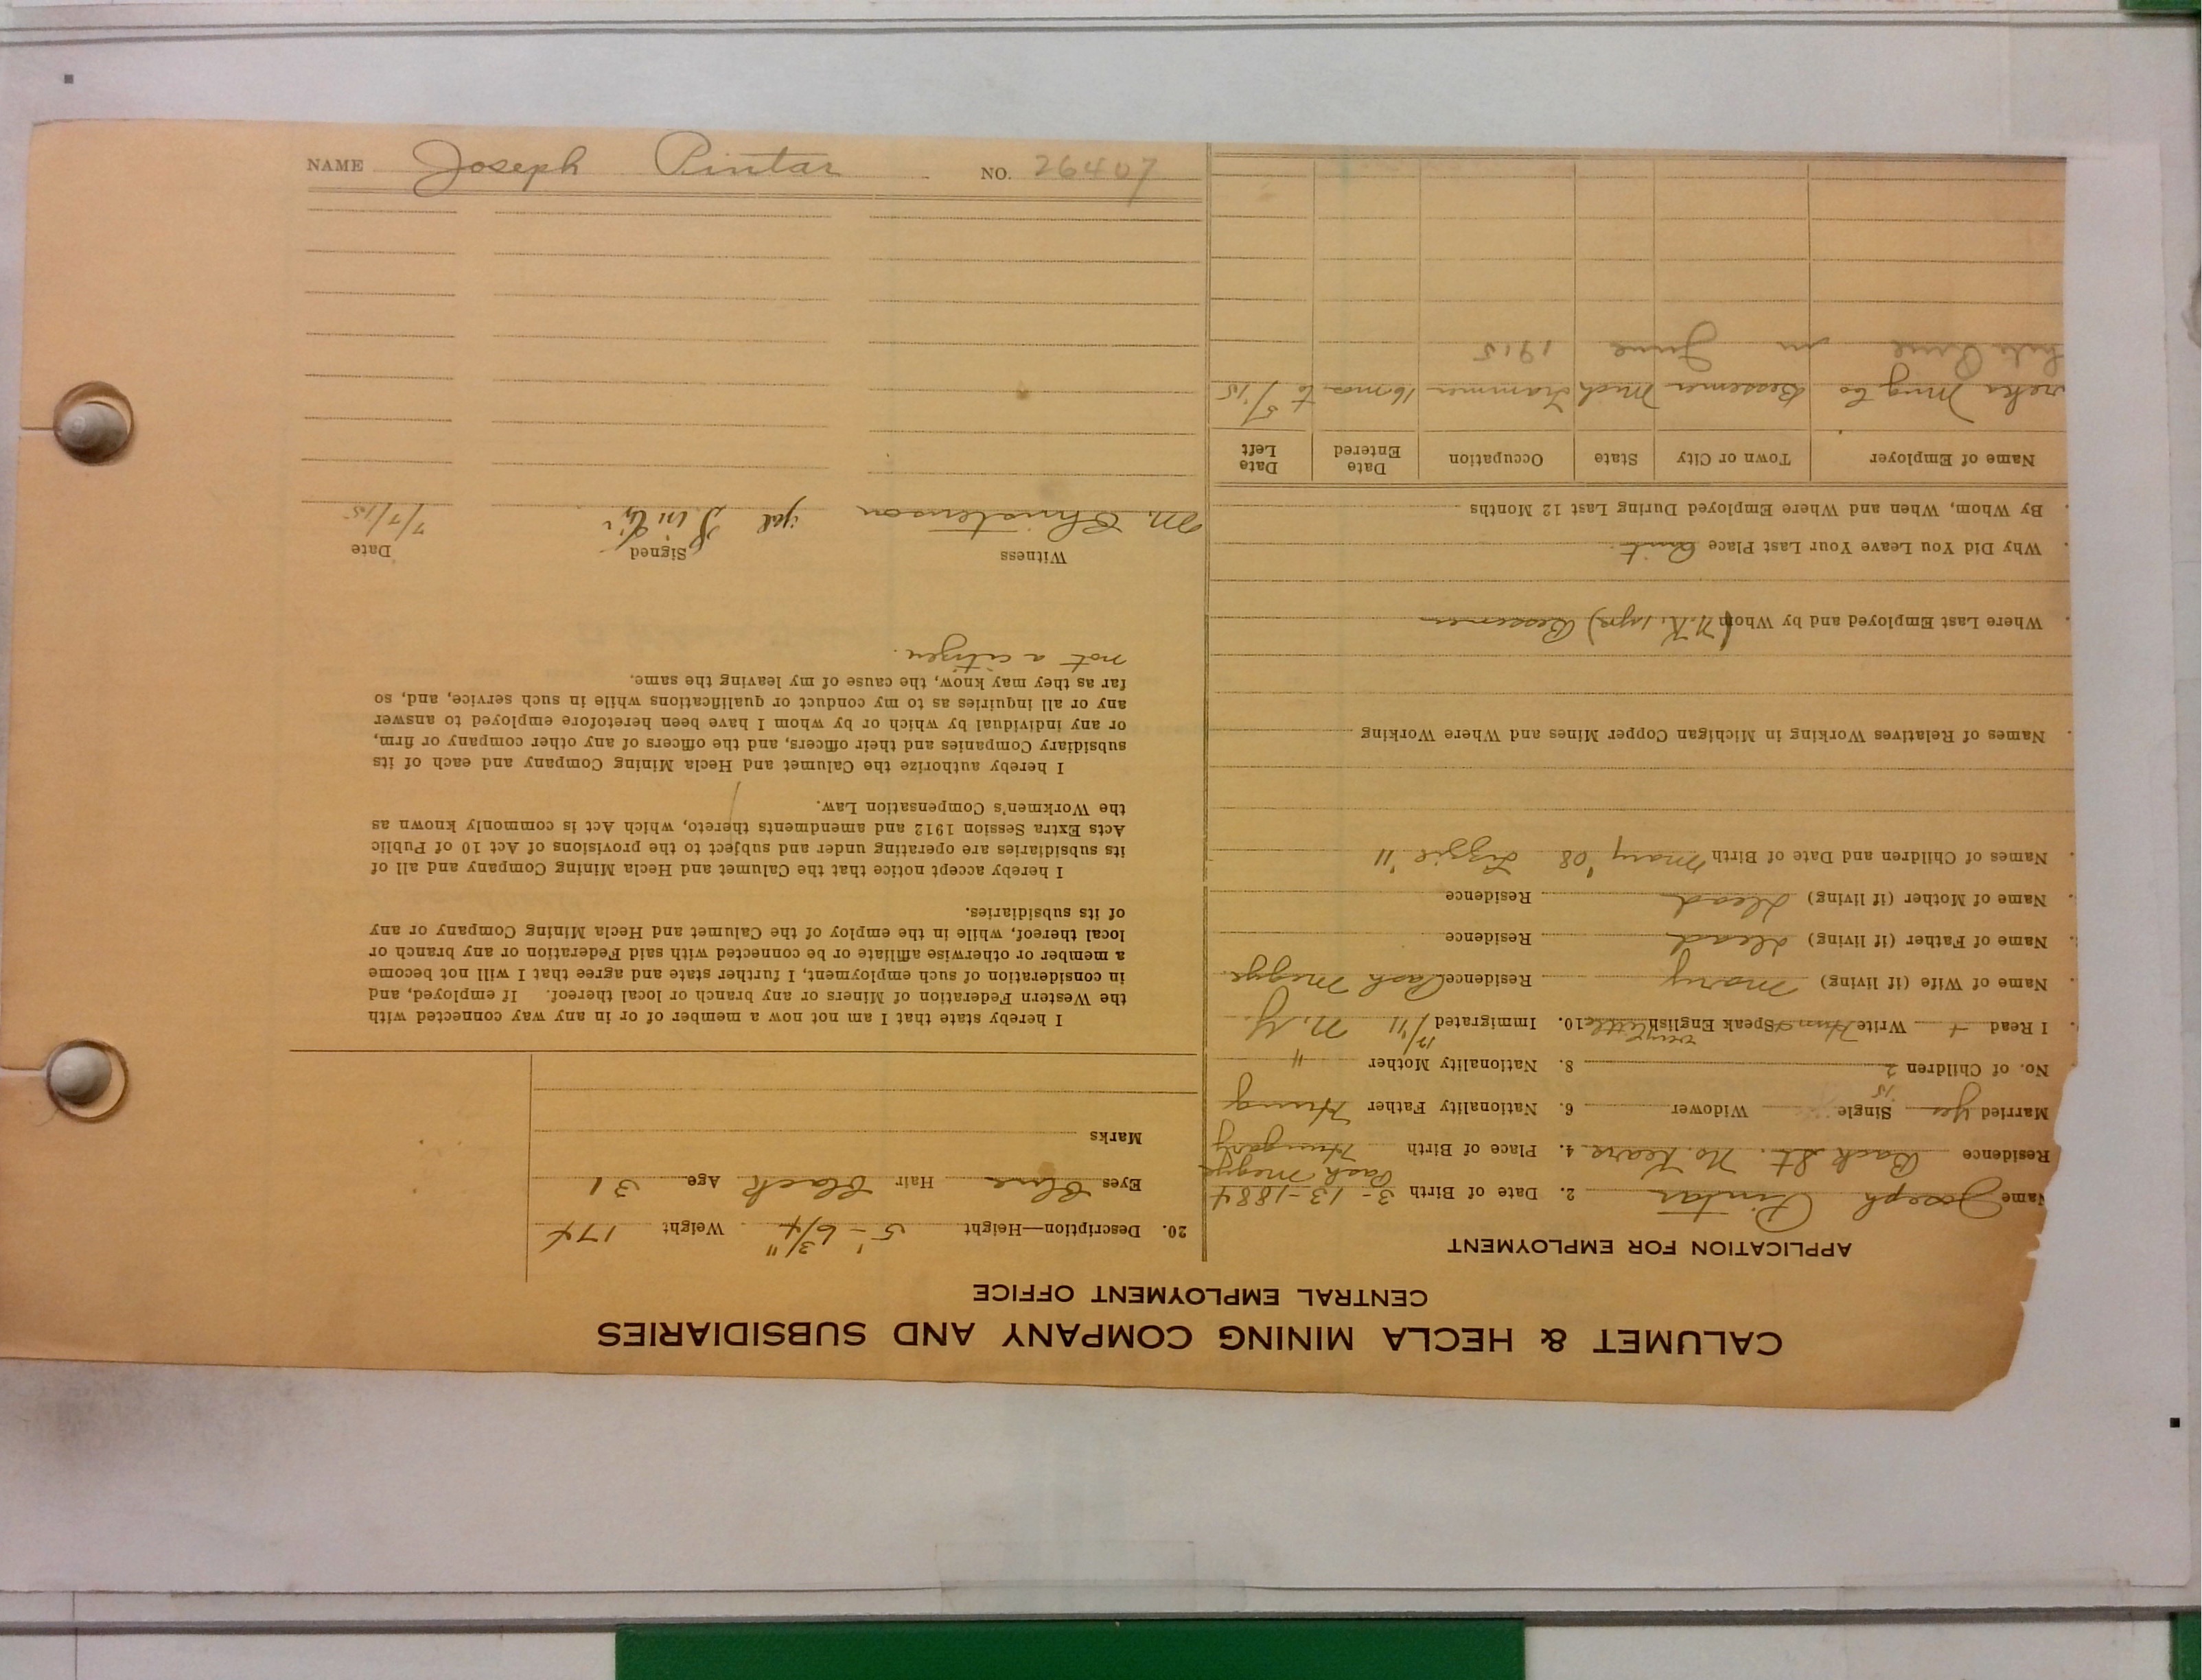 NAME Joseph Pintar NO. 26407
CALUMET & HECLA MINING COMPANY AND SUBSIDIARIES
CENTRAL EMPLOYMENT OFFICE
APPLICATION FOR EMPLOYMENT
Name Joseph Pintar 2. Date of Birth 3-13-1884
Residence Back St. No. Kears. 4. Place of Birth Hungary
Married yes Single Widower 6. Nationality Father Hung
No. of Children 2 8. Nationality Mother "
I Read + Write Speak English very little 10. Immigrated 12/'11 N.Y.
Name of Wife (if living) Mary Residence
Name of Father (if living) dead Residence
Name of Mother (if living) dead Residence
Names of Children and Date of Birth Mary '08 Lizzie '11
Names of Relatives Working in Michigan Copper Mines and Where Working
Where Last Employed and by Whom Bessemer
Why Did You Leave Your Last Place Quit
By Whom, When and Where Employed During Last 12 Months
Name of Employer Town or City State Occupation Date Entered Date Left
Mng Co Bessemer Mich Trammer 16 mos to 5/'15
Pine in June 1915
20. Description—Height 5'-6 3/4" Weight 174
Eyes Blue Hair Black Age 31
Marks
I hereby state that I am not now a member of or in any way connected with
the Western Federation of Miners or any branch or local thereof. If employed, and
in consideration of such employment, I further state and agree that I will not become
a member or otherwise affiliate or be connected with said Federation or any branch or
local thereof, while in the employ of the Calumet and Hecla Mining Company or any
of its subsidiaries.
I hereby accept notice that the Calumet and Hecla Mining Company and all of
its subsidiaries are operating under and subject to the provisions of Act 10 of Public
Acts Extra Session 1912 and amendments thereto, which Act is commonly known as
the Workmen's Compensation Law.
I hereby authorize the Calumet and Hecla Mining Company and each of its
subsidiary Companies and their officers, and the officers of any other company or firm,
or any individual by which or by whom I have been heretofore employed to answer
any or all inquiries as to my conduct or qualifications while in such service, and, so
far as they may know, the cause of my leaving the same.
not a citizen.
Witness Signed Date
M. Christenson 7/7/15